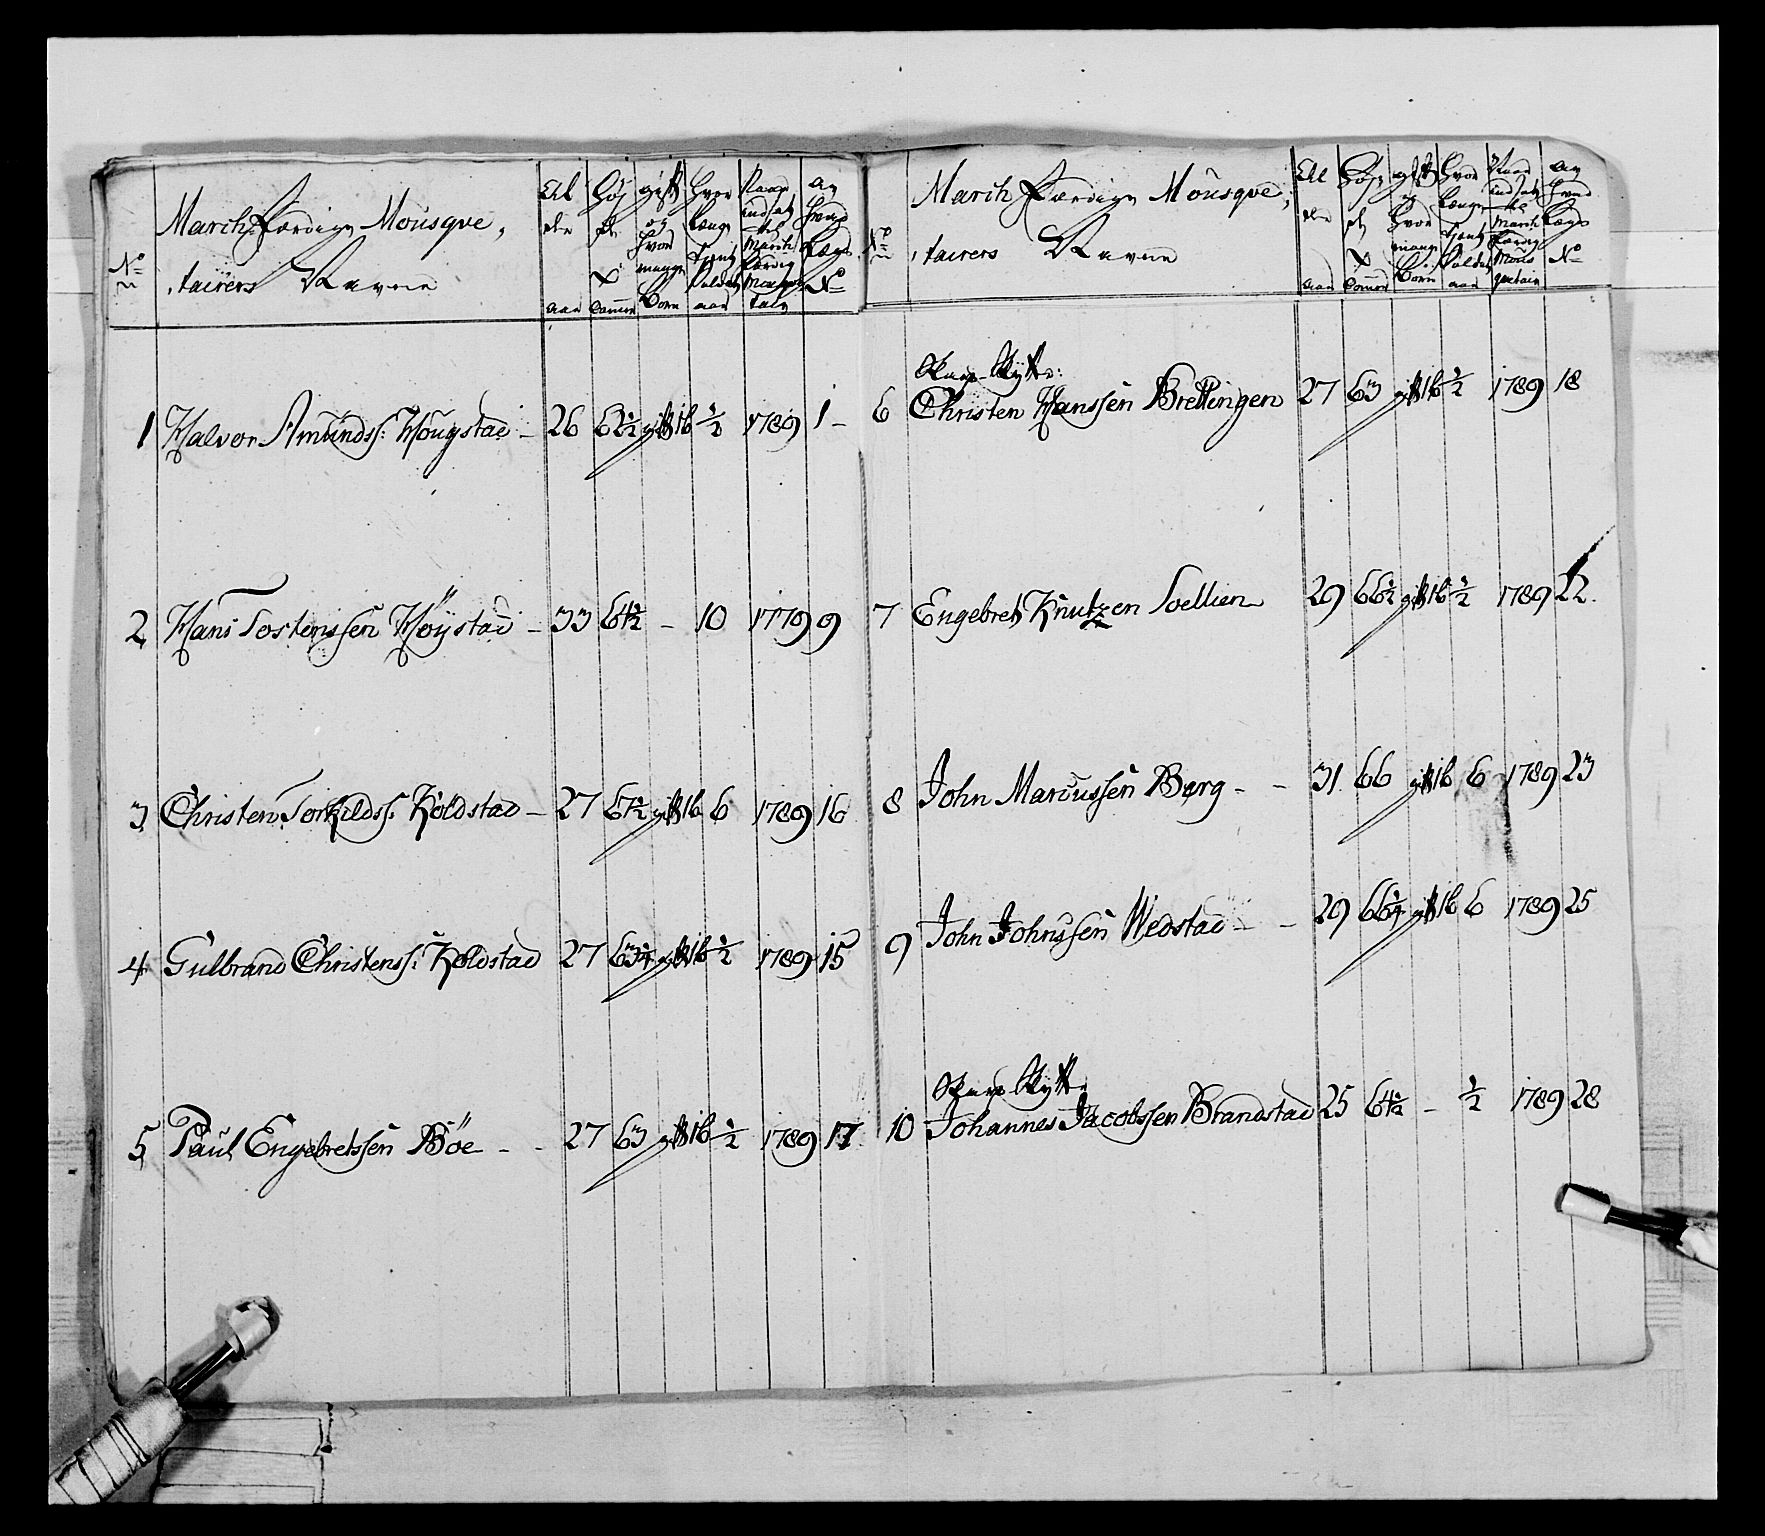 No March Færdige Mousqve,
,tairers Navne
Al
der
aar
Høj
de
Tommer
gift
og
hvor
mange
Børn
Hvor
længe
tjent
Soldat
aar
Naar
indsat
til
March
færdig
Mousqve
tair
Av
hvad
Lægs
No
1 Halvor Amundss: Hougstad - 26 62½ gift 1 b ½ 1789 1 -
2 Hans Tostenssen Höystad - 33 64½ - 10 1779 9
3 Christen Torkildss: Koldstad - 27 67½ gift 1 b 6 1789 16
4 Gulbrand Christenss: Koldstad 27 63¼ gift 1 b ½ 1789 15
5 Paul Engebretssen Böe - - 27 63 gift 1 b ½ 1789 17
No March Færdige Mousqve,
,tairers Navne
Al
der
aar
Høje
de
Tommer
gift
og
hvor
mange
Børn
Hvor
længe
tjent
Soldat
aar
Naar
indsat
til
March
færdig
Mous
qvetair
Av
hvad
Lægs
No
Skarp Skytte:
6 Christen Hanssen Brettingen 27 63 gift 1 b ½ 1789 18
7 Engebret Knutzen Soellien 29 66½ gift 1 b ½ 1789 22.
8 John Marcussen Berg - - 31 66 gift 1 b 6 1789 23
9 John Johnssen Wedstad - - 29 66¼ gift 1 b 6 1789 25
Skarp Skytte
10 Johannes Jacobssen Brandstad 25 64½ - ½ 1789 28